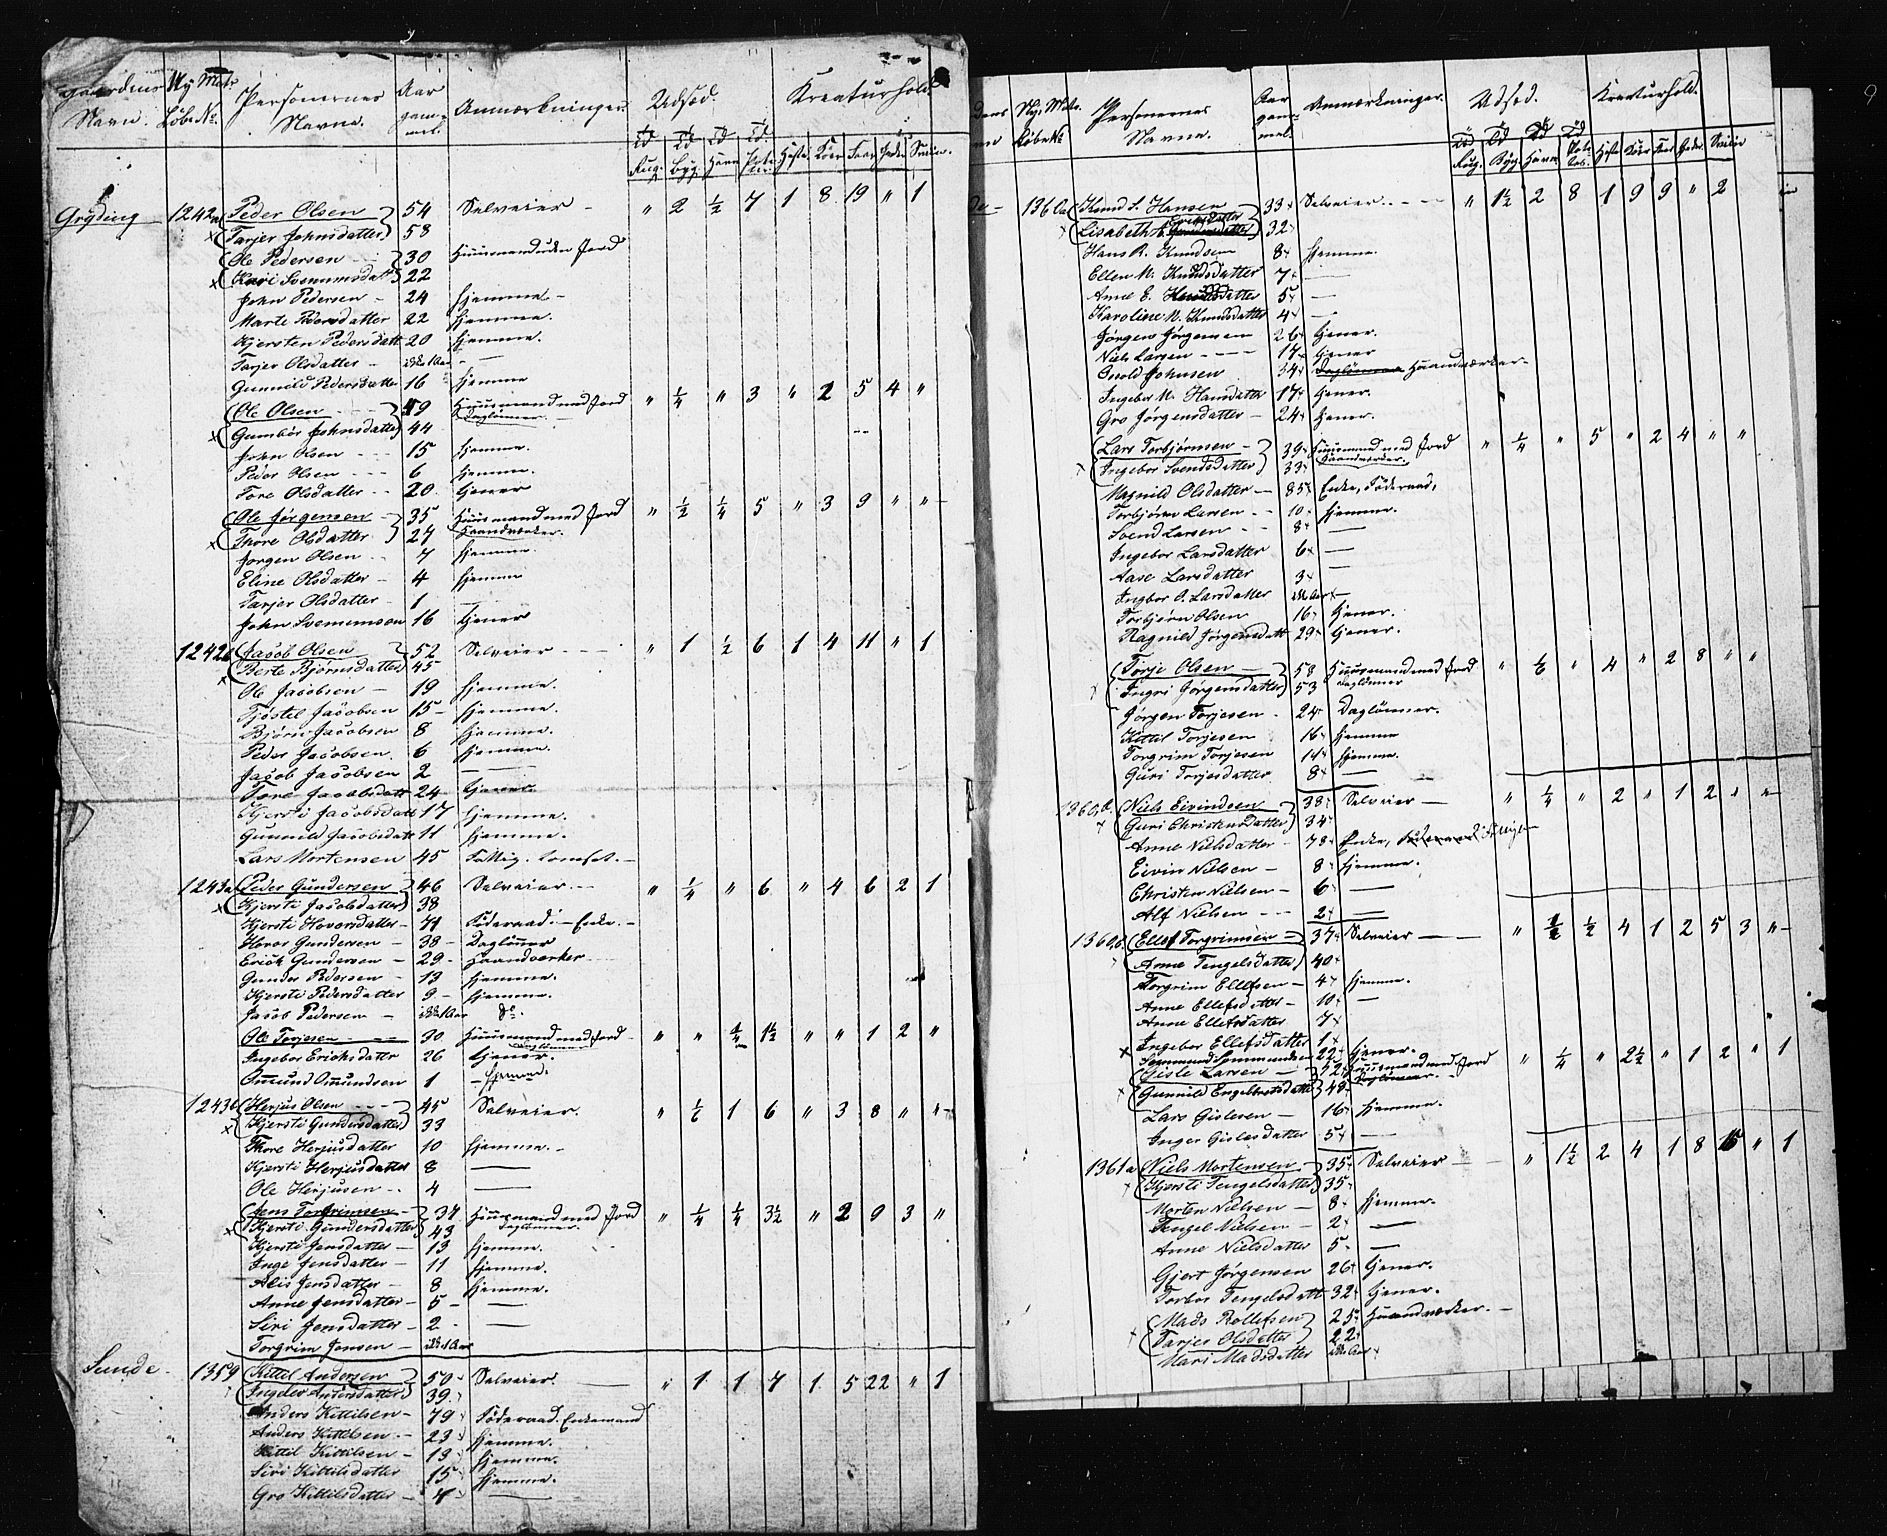 Gaardens Navn. Ny Matr Løbe No. Personernes Navne. Aar gammel. Anmærkninger. Udsæd. Kreaturhold.
Rug. Byg. Havre Heste Køer Faar Svin.
Gryting 1242a Peder Olsen 54 Selveier - " 2 ½ 7 1 8 19 " 1
Tarjer Johnsdatter 58
Ole Pedersen 30 Huusmand uden Jord
Kari Svennumsdatt 22
John Pedersen - 24 hjemme -
Marte Pedersdatter 22 hjemme.
Kjersten Pedersdatt 20 hjemme.
Tarjer Olsdatter - ikke 1 Aar -
Gunnild Pedersdatter 16 hjemme
Ole Olsen 49 Huusmand med Jord Daglønner " ¼ " 3 " 2 5 4 "
Gumbør Johnsdatter 44
John Olsen 15 hjemme.
Peder Olsen 6 hjemme.
Tore Olsdatter 20 tjener
Ole Jørgensen 35 Huusmand med Jord Haandværker. " ½ ¼ 5 " 3 9 " "
Thore Olsdatter 27
Jørgen Olsen 7 hjemme.
Eline Olsdatter - 4 hjemme
Tarjer Olsdatter 1 -
John Svennumson 16 tjener
1242b Jacob Olsen 52 Selveier " 1 ½ 6 1 4 11 " 1
Berte Bjørnsdatter 45
Ole Jacobsen - 19 hjemme.
Tjøstel Jacobsen 15 hjemme.
Bjørn Jacobsen 8 hjemme.
Peder Jacobsen. 6 hjemme.
Jacob Jacobsen 2 -
Tore Jacobsdatt 24 tjener
Kjersti Jacobsdatt 17 hjemme.
Gunnild Jacobsdatt 11 hjemme.
Lars Mortensen 45 Fattig.
1243a Peder Gundersen 46 Selveier " ¼ " 6 " 4 6 2 1
Kjersti Jacobsdatter 38
Kjersti Hovorsdatter 71 Føderaad - Enke. -
Hovor Gundersen - 38 Daglønner
Erick Gundersen - 29 Haandværker
Gunder Pedersen - 13 hjemme.
Kjersti Pedersdatter 9 - hjemme.
Jacob Pedersen - ikke 1 Aar do.
Ole Terjesen 30 Huusmand med Jord Daglønner " " ¼ 1½ " " 1 2 "
Ingebor Ericksdatter 26 tjener.
Ommund Ommundsen 1 - hjemme.
1243b Herjus Olsen 45 Selveier. " ½ 1 6 " 3 8 " "
Kjersti Gundersdatter 33
Thore Herjusdatter 10 hjemme. -
Kjersti Herjusdatter 8 -
Ole Herjusen 4 -
Jens Torgrimsen 34 Huusmand med Jord Daglønner " ¼ ¼ 3½ " 2 9 3 "
Kjersti Gundersdatter 43
Kjersti Jensdatter - 13 hjemme.
Inge Jensdatter - 11 hjemme.
Alis Jensdatter - 8 hjemme.
Anne Jensdatter - 5 -
Siri Jensdatter - 2 -
Torgrim Jensen - ikke 1 Aar
Sunde - 1359 Kittel Andersen 50 Selveier. " 1 1 7 1 5 22 " 1
Ingeler Andersdatter 39
Anders Kittilsen - 79 Føderaad. Enkemand
Anders Kittilsen - 23 hjemme.
Kittil Kittilsen - 13 hjemme.
Siri Kittilsdatter 15 hjemme.
Gro Kittilsdatter - 4 -
Ny Matr Løbe No Personernes Navne. Aar gammel. Anmærkninger. Udsæd. Kreaturhold.
Rug. Byg. Havre Heste Køer Svin
1360a Knud S. Hansen 33 Selveier " 1½ 2 8 1 9 9 " 2
Lisabeth 32
Hans R. Knudsen 8 hjemme.
Ellen M. Knudsdatter 7 -
Anne E. 5 -
Karoline M. Knudsdatter 4 -
Jørgen Jørgensen 26 tjener.
Niels Larsen 17 tjener
Osold Johnsen 34 Daglønner Haandværker
Ingebor M. Hansdatter 17 tjener.
Gro Jørgensdatter - 24 tjener.
Lars Torbjørnsen - 39 Huusmand med Jord Haandværker. " ¼ " 5 " 2 4 " "
Ingebor Svendsdatter 33
Magnild Olsdatter - 85 Enke, Føderaad,
Torbjørn Larsen 10 hjemme.
Svend Larsen 8 -
Ingebor Larsdatter 6 -
Aase Larsdatter 3 -
Ingbor O. Larsdatter ikke 1 Aar -
Torbjørn Olsen 16 tjener.
Ragnild Jørgensdatt 29 tjener.
Torje Olsen - 58 Huusmand med Jord Daglønner " " 4 " 2 8 " "
Ingri Jørgensdatter 53
Jørgen Torjesen 24 Daglønner.
Kittil Torjesen 16 hjemme
Torgrim Torjesen 14 hjemme.
Guri Torjesdatter 8 -
1360b. Niels Eivindsen 38 Selveier - " ¼ " 2 " 1 2 " "
Guri Christensdatter 34
Anne Nielsdatter - 78 Enke,
Eivin Nielsen - 8 hjemme.
Christen Nielsen - 6 -
Alf Nielsen 2 -
1360b. Ellef Torgrimsen - 37 Selveier " ½ ½ 4 1 2 5 3 "
Anne Tengelsdatter 40
Torgrim Ellefsen - 4 hjemme.
Anne Ellefsdatter - 10 -
Anne Ellefsdatter 7
Ingebor Ellefsdatter 1
22 tjener.
Gisle Larsen - 52 Huusmand med Jord Daglønner " ¼ " 2½ " 1 2 " 1
Gunnild Engelbretsdatter 48
Lars Gislesen - 16 hjemme.
Inger Gislesdatter 5 -
1361a Niels Mortensen 35 Selveier - " 1½ 2 4 1 8 15 " 1
Kjersti Tengelsdatter 35
Morten Nielsen - 8 hjemme.
Tengel Nielsen - 2 -
Anne Nielsdatter 5 -
Gjert Jørgensen 26 tjener.
Torbor Tengelsdatt 32 tjener.
Mads Rollefsen 25 Haandværker. -
Tarjer Olsdatter 22
Mari Madsdatter ikke 1 Aar
9